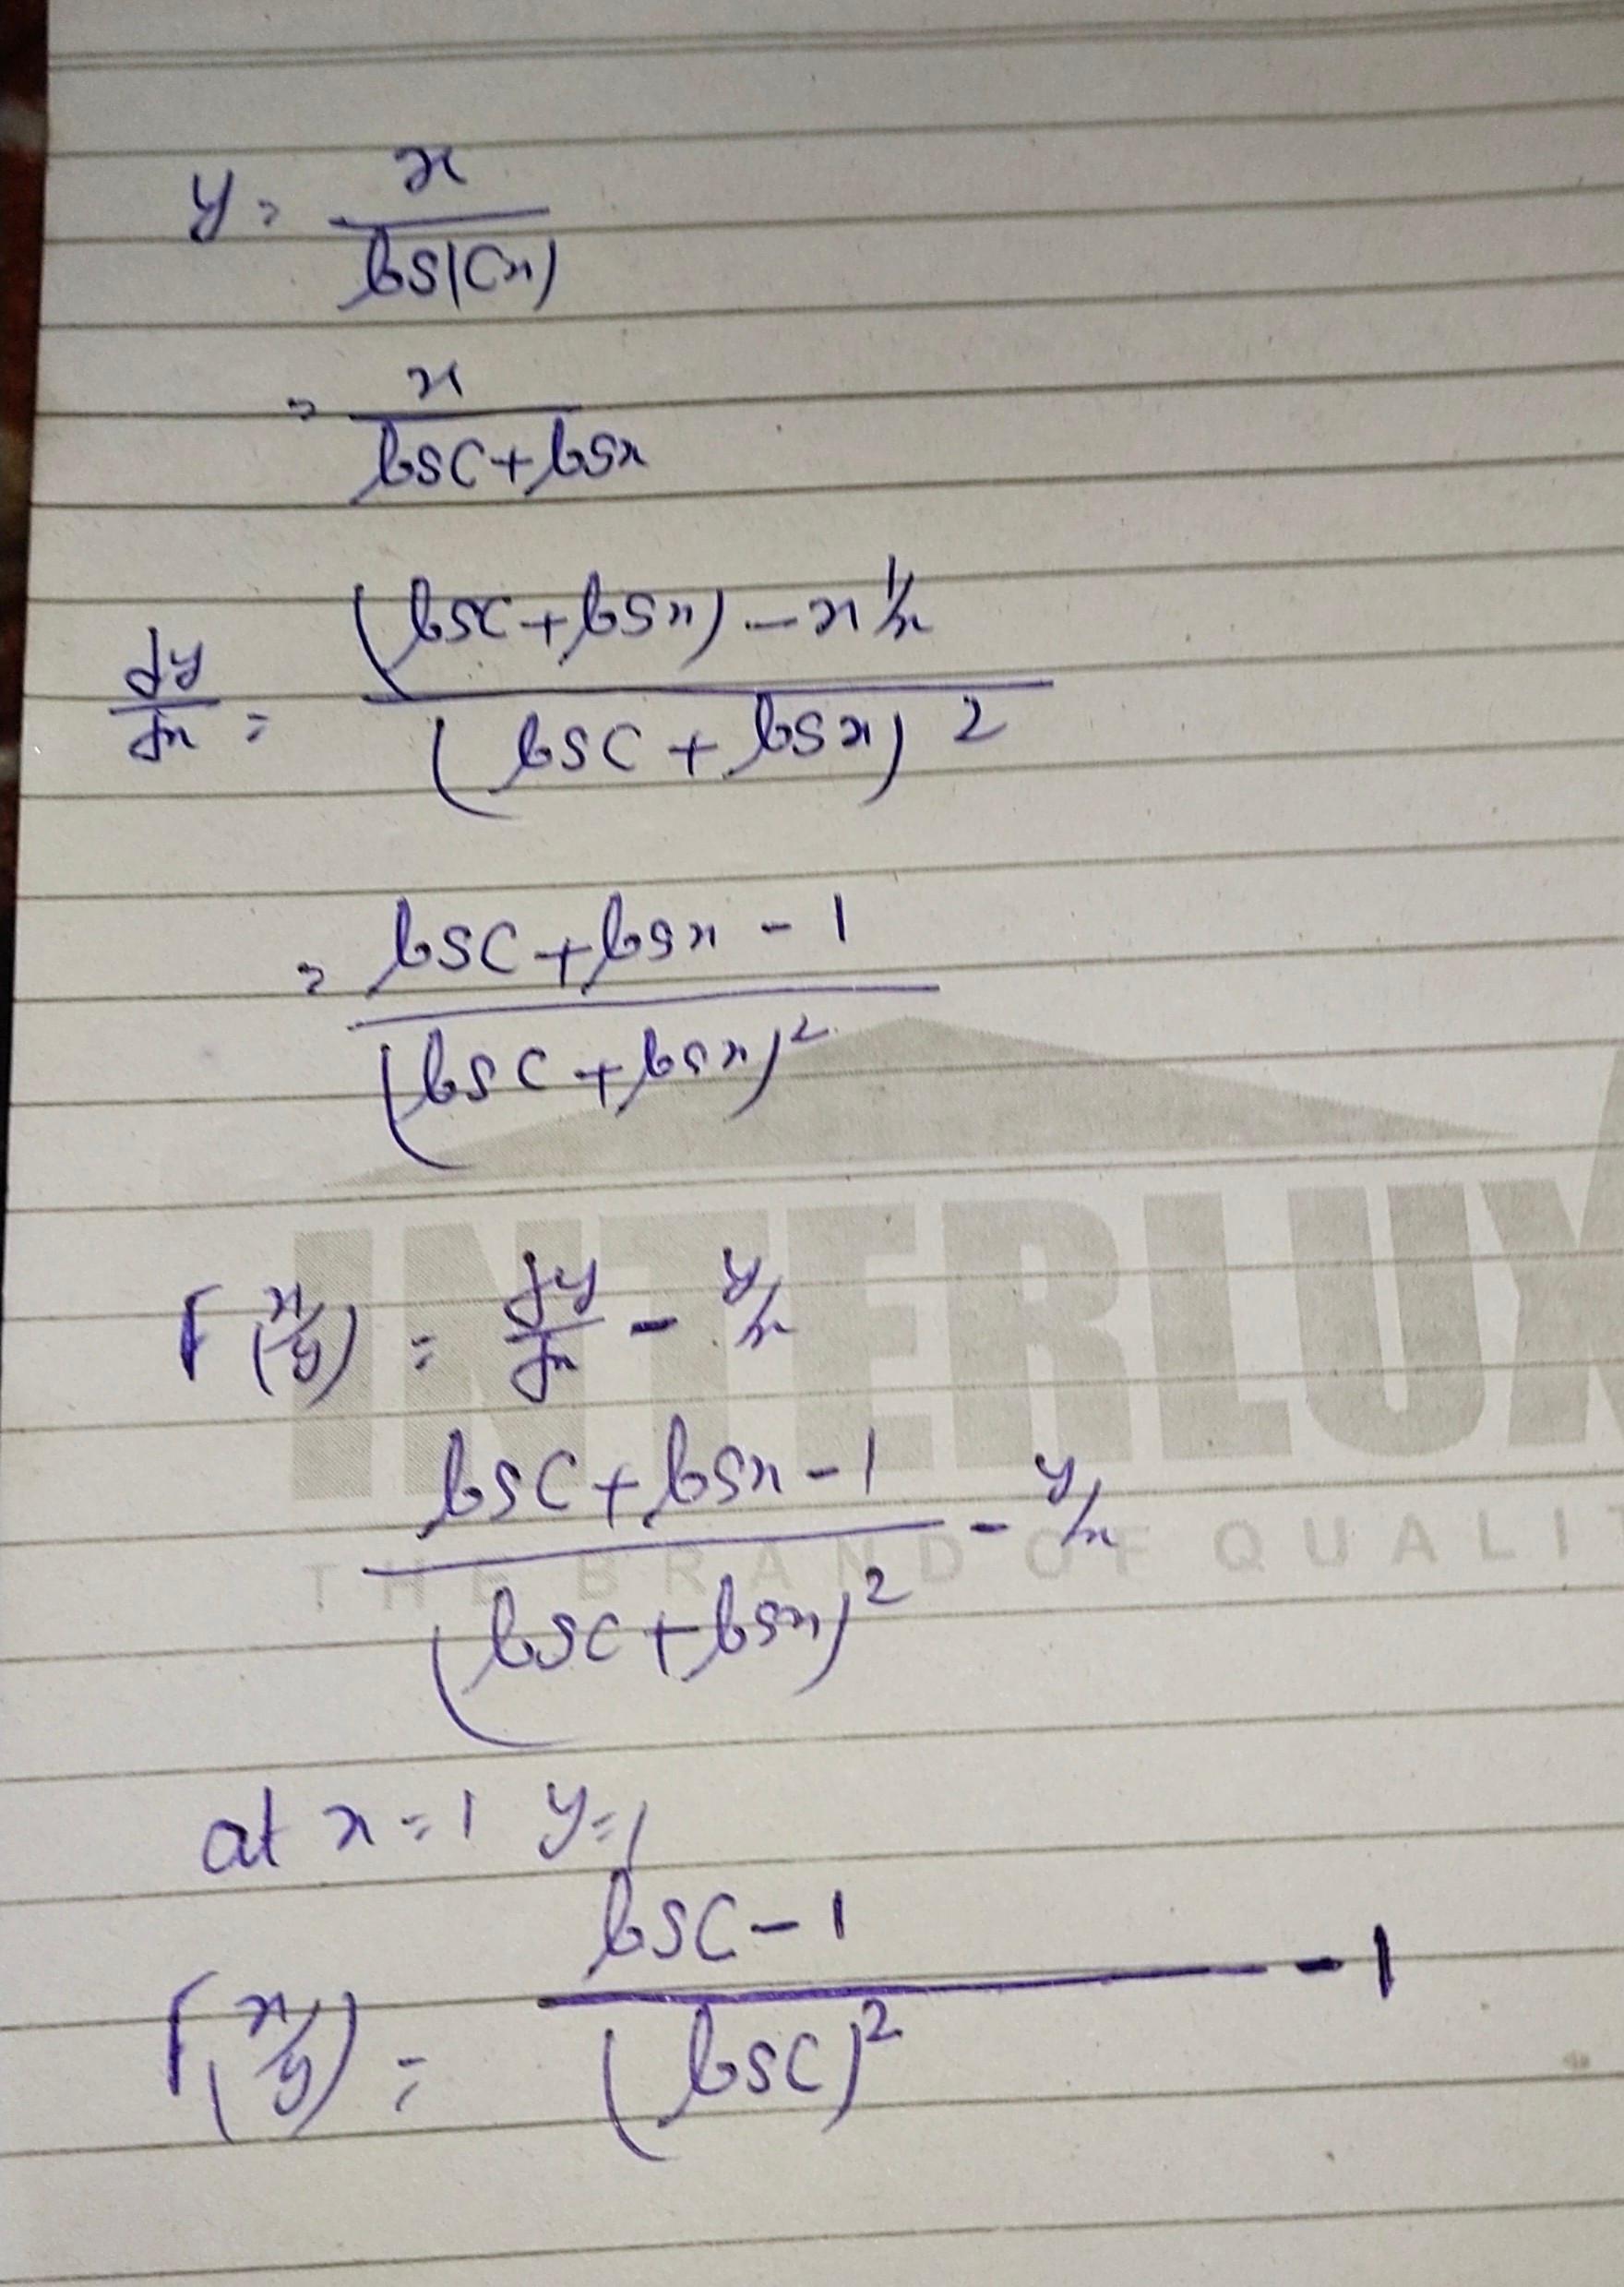 y = x / log(cx)
= x / (logc + logx)
dy/dx = ((logc + logx) - x 1/x) / (logc + logx)^2
= (logc + logx - 1) / (logc + logx)^2
F(x/y) = dy/dx - y/x
(logc + logx - 1) / (logc + logx)^2 - y/x
INTERLUX
THE BRAND OF QUALIT
at x = 1 y = 1
F(x/y) = (logc - 1) / (logc)^2 - 1